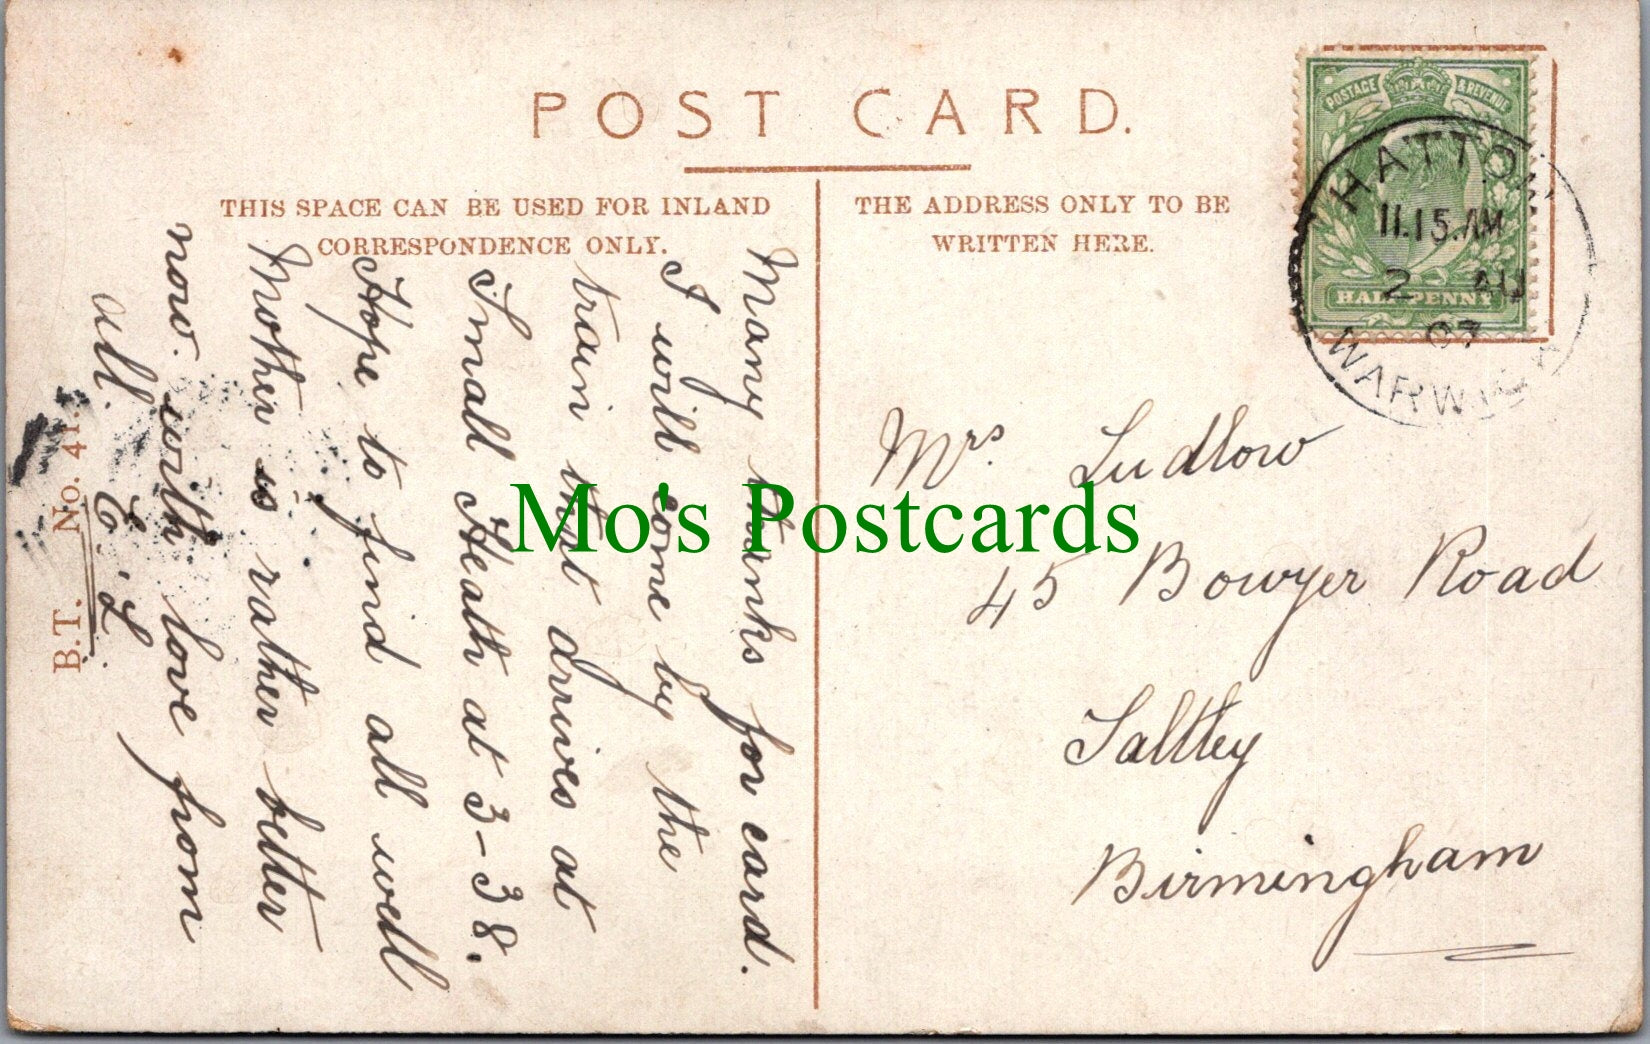 POST CARD.
THIS SPACE CAN BE USED FOR INLAND
CORRESPONDENCE ONLY.
THE ADDRESS ONLY TO BE
WRITTEN HERE.
POSTAGE & REVENUE
HALF PENNY
HATTON
11.15.AM
2 AU
07
WARWICK
Many thanks for card.
I will come by the
train that arrives at
Small Heath at 3-38.
Hope to find all well
Mother is rather better
now. with love from
all. E. L.
Mrs. Ludlow
45 Bowyer Road
Saltley
Birmingham
B.T. No. 41.
Mo's Postcards